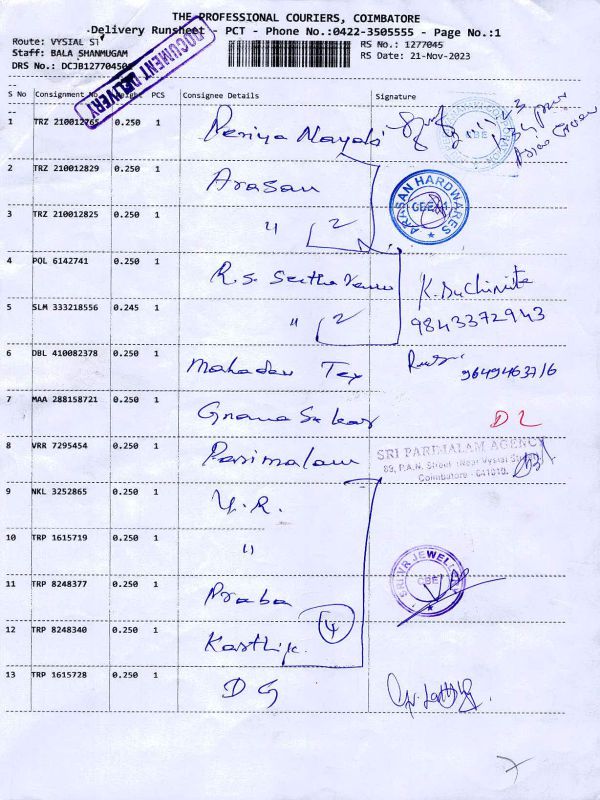 THE PROFESSIONAL COURIERS, COIMBATORE
Delivery Runsheet - PCT - Phone No.:0422-3505555 - Page No.:1
Route: VYSIAL ST
Staff: BALA SHANMUGAM
DRS No.: DCJB127704500
RS No.: 1277045
RS Date: 21-Nov-2023
DOCUMENT DELIVERY
S No Consignment No Weight PCS Consignee Details Signature
1 TRZ 210012765 0.250 1 Periya Nayaki
CBE
2 TRZ 210012829 0.250 1 Arasan
ARASAN HARDWARES
CBE-1
3 TRZ 210012825 0.250 1 " 2
4 POL 6142741 0.250 1 R.S. Seetha K. Suchinite
5 SLM 333218556 0.245 1 " 2 9843372943
6 DBL 410082378 0.250 1 Mahadev Tex 9649463716
7 MAA 288158721 0.250 1 Gnana Sekar D L
8 VRR 7295454 0.250 1 Parimalam
SRI PARIMALAM AGENCY
83, P.A.N. Street (Near Vysial St)
Coimbatore - 641010.
9 NKL 3252865 0.250 1 Y.R.
10 TRP 1615719 0.250 1 "
SRI VR JEWELLERY
CBE
11 TRP 8248377 0.250 1 Praba
12 TRP 8248340 0.250 1 Karthik 4
13 TRP 1615728 0.250 1 D G
7